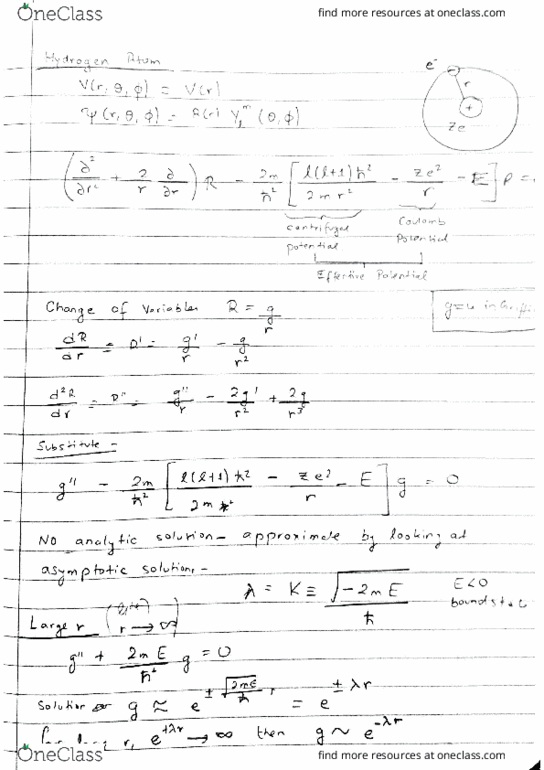 OneClass
find more resources at oneclass.com
Hydrogen Atom
V(r, θ, φ) = V(r)
ψ(r, θ, φ) = R(r) Y_l^m (θ, φ)
e⁻
r
+
Ze
(∂²/∂r² + 2/r ∂/∂r) R - 2m/ħ² [l(l+1)ħ²/2mr² - Ze²/r - E] R =
centrifugal potential
Coulomb Potential
Effective Potential
Change of Variables R = g/r
g=u in Griffi
dR/dr = R' = g'/r - g/r²
d²R/dr = R'' = g''/r - 2g'/r² + 2g/r³
Substitute -
g'' - 2m/ħ² [l(l+1)ħ²/2mr² - Ze²/r - E] g = 0
No analytic solution - approximate by looking at
asymptotic solutions -
λ = K ≡ √(-2mE)/ħ
E<0
bound state
Large r
r → ∞
g'' + 2mE/ħ² g = 0
Solution g ≈ e^(±√(2mE)/ħ r) = e^(±λr)
For large r, e^(+λr) → ∞ then g ~ e^(-λr)
OneClass
find more resources at oneclass.com